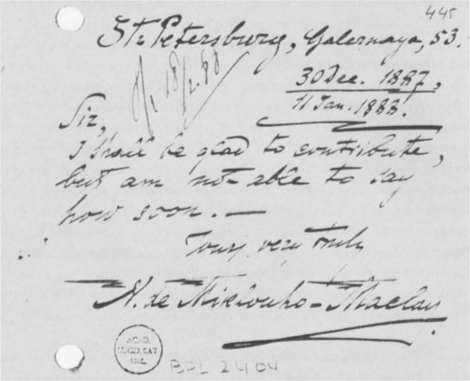 445
St. Petersburg, Galernaya, 53.
30 Dec. 1887,
11 Jan. 1888.
18/2.88
Sir,
I shall be glad to contribute,
but am not able to say
how soon. —
Yours very truly
N. de Mikloucho-Maclay.
ACAD.
LUGD. BAT
BIBL.
BPL 2404